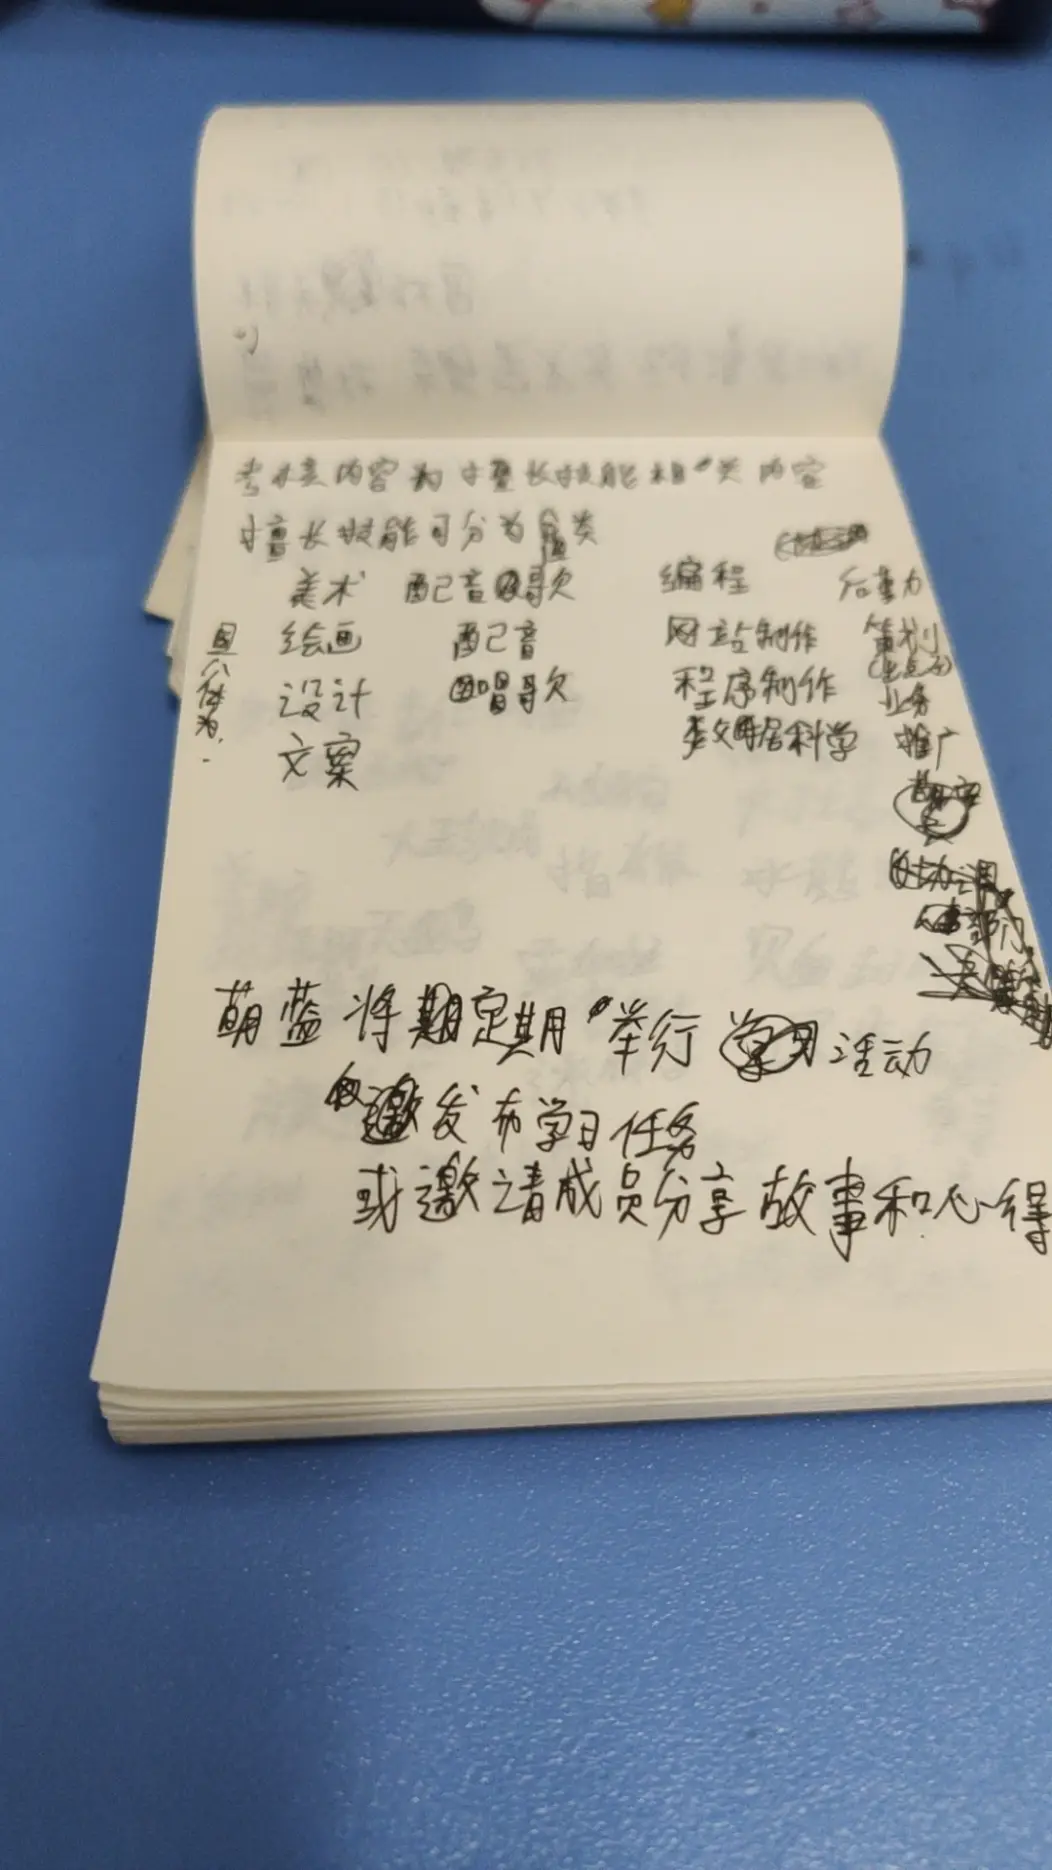 考核内容为擅长技能相关内容
擅长技能可分为类
美术 配音歌 编程 后勤
具体为.
绘画 配音 网站制作 策划
(出点子)
设计 唱歌 程序制作 业务
文案 数据科学 推广
协调
部门
萌蓝将期定期举行活动
发布学习任务
或邀请成员分享故事和心得